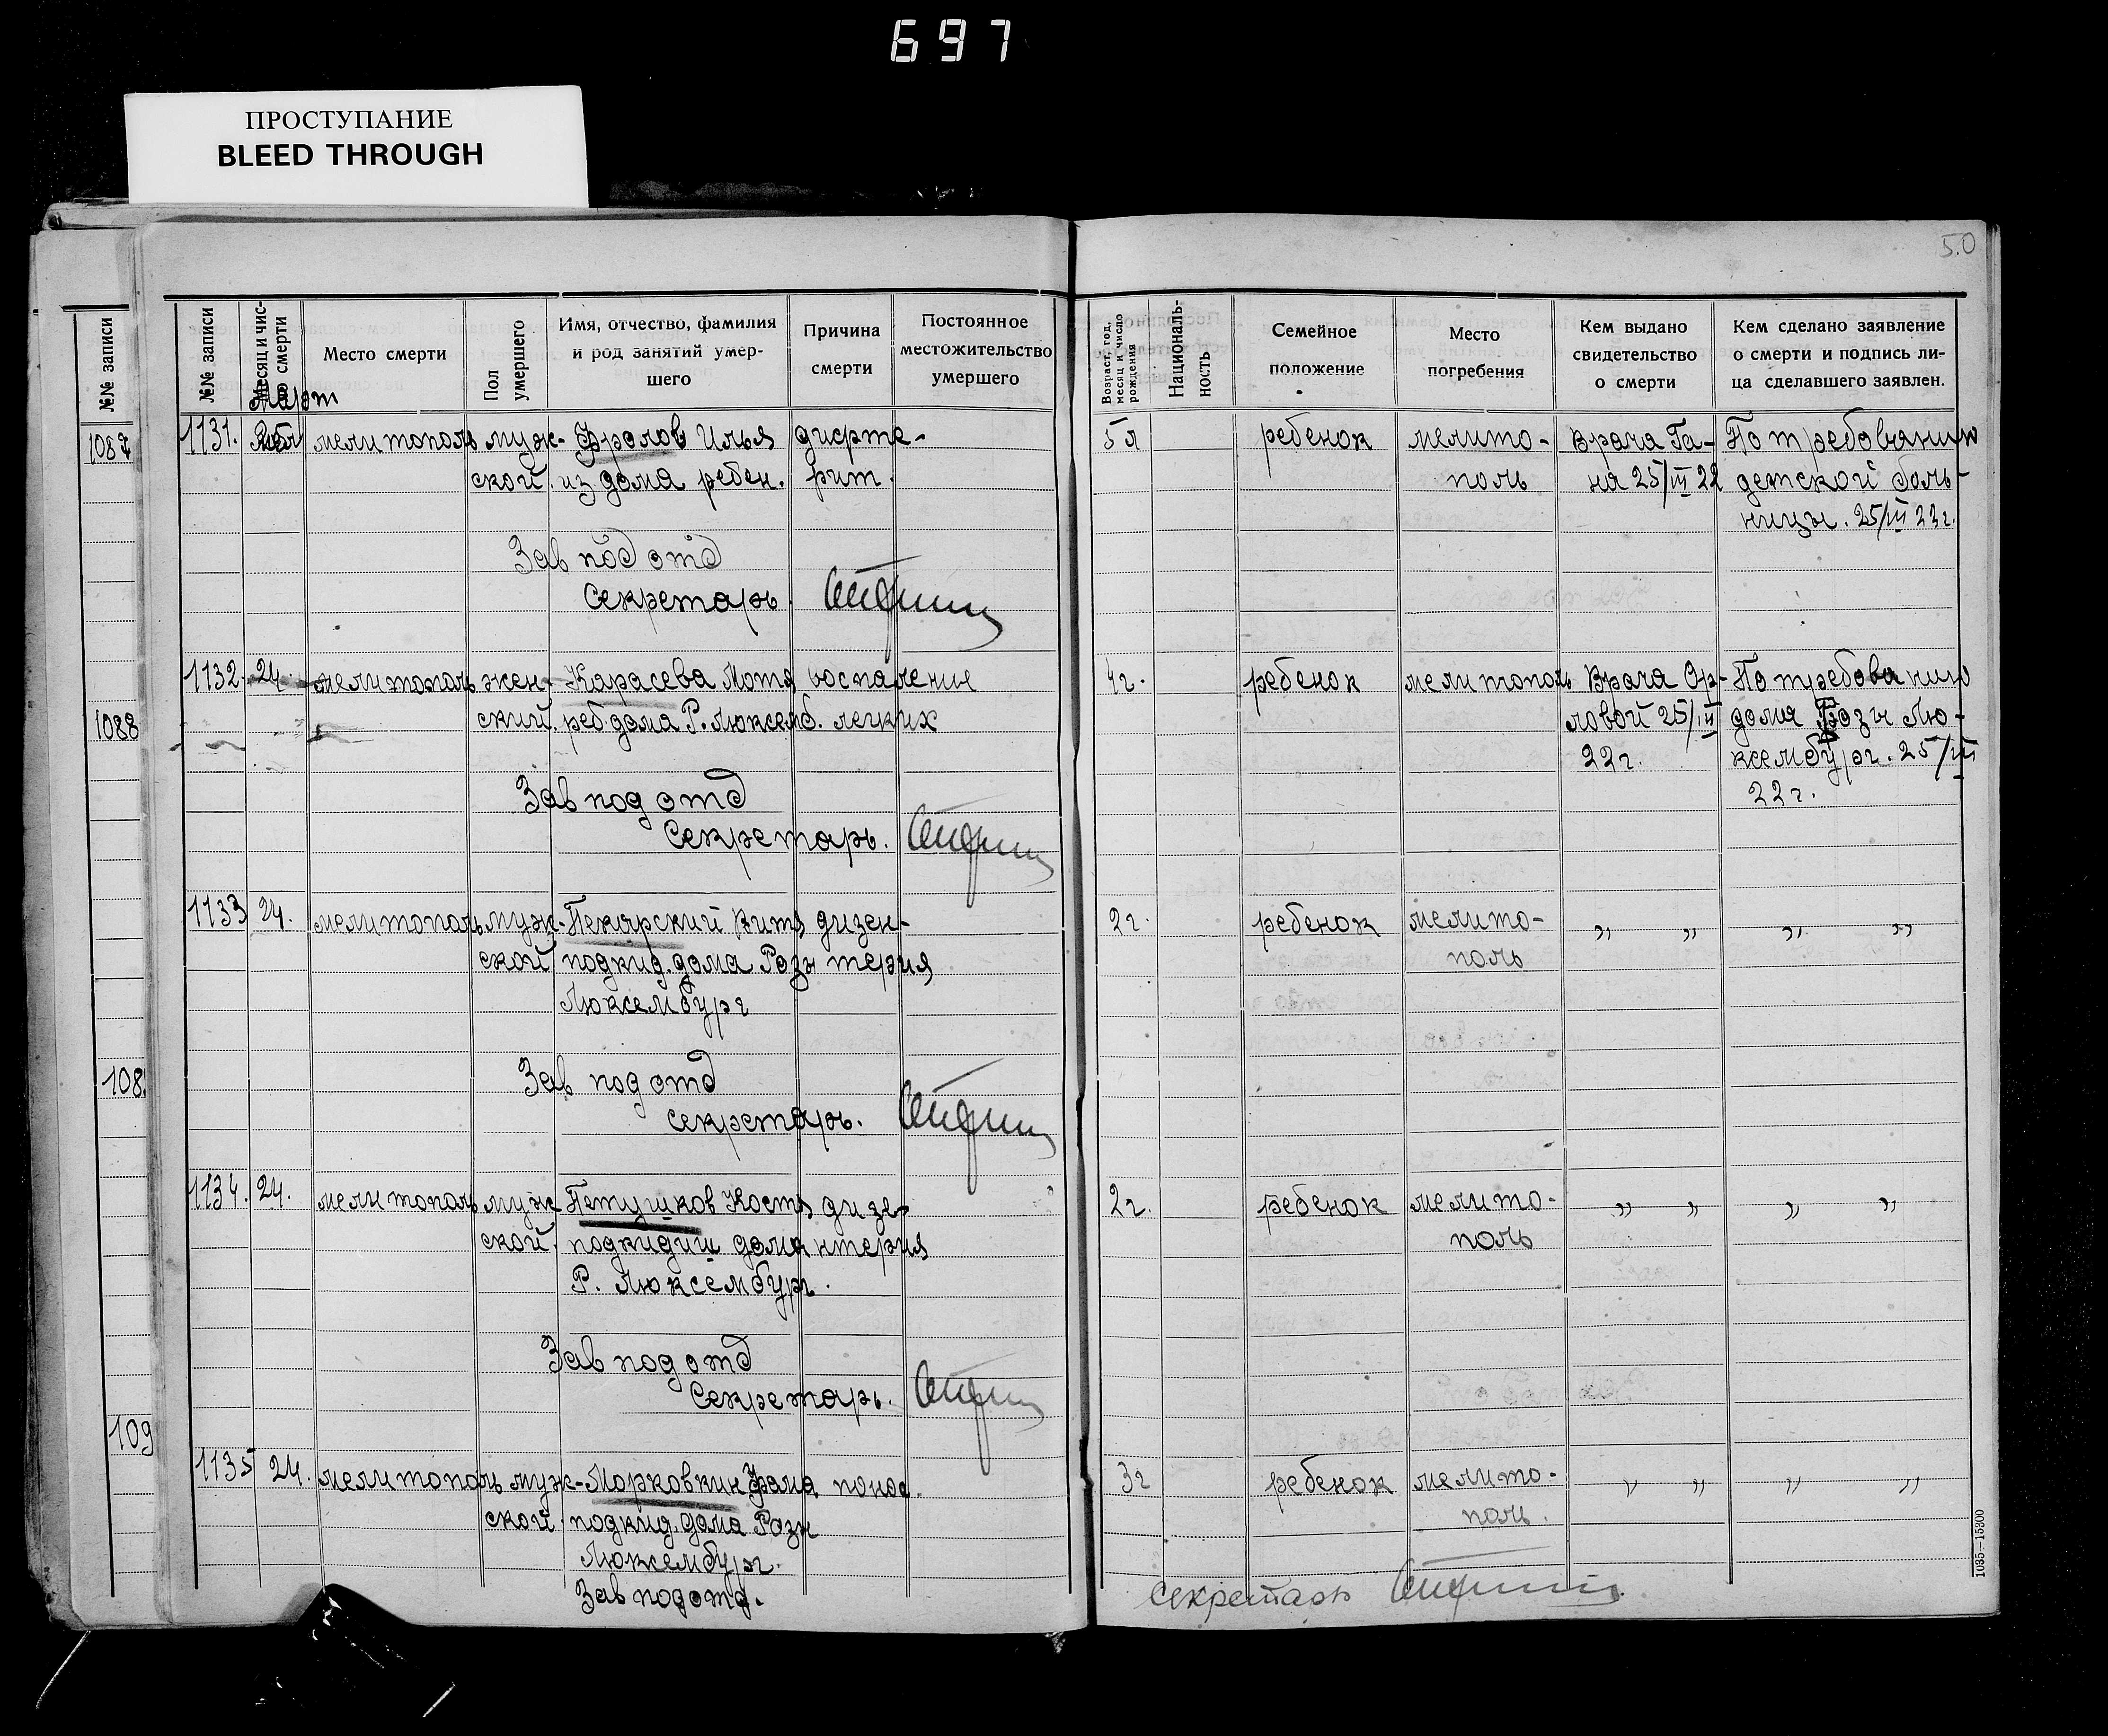 697
ПРОСТУПАНИЕ
BLEED THROUGH
50
№№ записи
№№ записи
Месяц и чис-
ло смерти
Место смерти
Пол
умершего
Имя, отчество, фамилия
и род занятий умер-
шего
Причина
смерти
Постоянное
местожительство
умершего
Возраст, год,
месяц и число
рождения
Националь-
ность
Семейное
положение
Место
погребения
Кем выдано
свидетельство
о смерти
Кем сделано заявление
о смерти и подпись ли-
ца сделавшего заявлен.
Март
1087
1131. мелитополь муж- Фролов Илья дифте- 5л ребенок мелито- Врача Га- По требованию
ской. из дома ребен. рит. поль на 25/III 22 детской боль-
ницы. 25/III 22г.
Зав под отд
Секретарь.
1132. 24. мелитополь жен- Карасева Мотя воспаление 4г. ребенок мелитополь Врача Ор- По требованию
1088
ский. реб. дома Р. Люксемб. легких ловой 25/III дома Розы Лю-
22г. ксембург. 25/III
22г.
Зав под отд
Секретарь.
1133 24. мелитополь муж- Пекарский Витя дизен- 2г. ребенок мелито- „ „ „ „
ской подкид. дома Розы терия поль
Люксембург
108
Зав под отд
секретарь.
1134. 24. мелитополь муж Петушков Костя дизе- 2г. ребенок мелито- „ „ „ „
ской. подкидиш дома нтерия поль
Р. Люксембург.
Зав под отд
Секретарь.
109
1135 24. мелитополь муж- Морковкин Фома понос. 3г ребенок мелито- „ „ „ „
ской. подкид. дома Розы поль.
Люксембург.
Зав подотд. секретарь
1035—15300